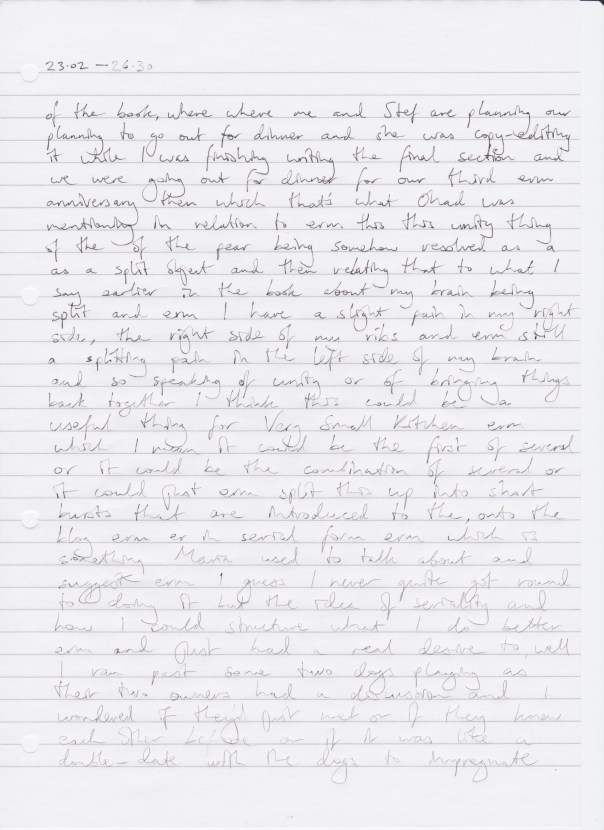 23.02 — 26.30
of the book, where where me and Stef are planning our
planning to go out for dinner and she was copy-editing
it while I was finishing writing the final section and
we were going out for dinner for our third erm
anniversary then which that's what Ohad was
mentioning in relation to erm this this unity thing
of the of the pear being somehow resolved as a
as a split object and then relating that to what I
say earlier in the book about my brain being
split and erm I have a slight pain in my right
side, the right side of my ribs and erm still
a splitting pain in the left side of my brain
and so speaking of unity or of bringing things
back together I think this could be a
useful thing for Very Small Kitchen erm
which I mean it could be the first of several
or it could be the combination of several or
it could just erm split this up into short
bursts that are introduced to the, onto the
blog erm er in serial form erm which is
something Maria used to talk about and
suggest erm I guess I never quite got round
to doing it but the idea of seriality and
how I could structure what I do better
erm and just had a real desire to, well
I ran past some two dogs playing as
their two owners had a discussion and I
wondered if they'd just met or if they knew
each other before or if it was like a
double-date with the dogs to impregnate